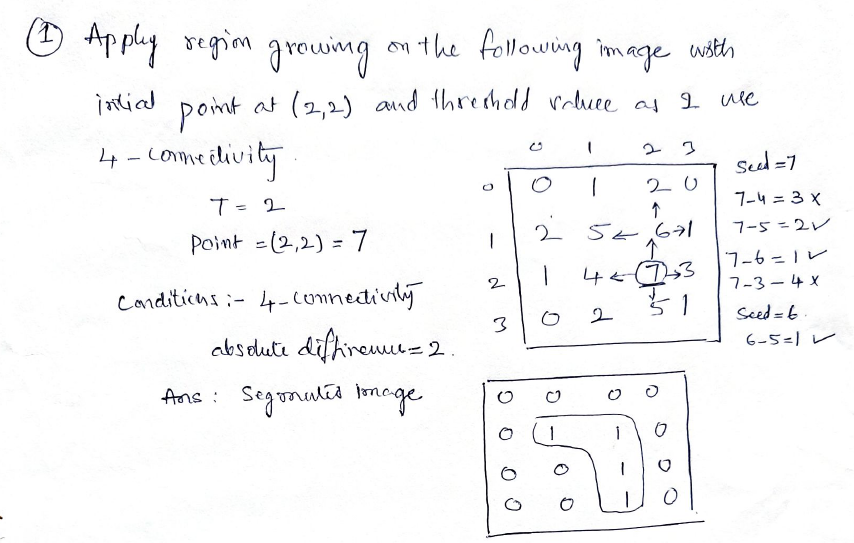 ① Apply region growing on the following image with
intial point at (2,2) and threshold value as 2 use
4-connectivity.
T = 2
Point = (2,2) = 7
Conditions :- 4-connectivity
absolute diffirence = 2.
Ans : Segmented image
0 1 2 3
0 0 1 2 0
1 2 5 ← 6 → 1
2 1 4 ← 7 → 3
3 0 2 5 1
Seed = 7
7-4 = 3 ×
7-5 = 2 ✓
7-6 = 1 ✓
7-3 - 4 ×
Seed = 6.
6-5 = 1 ✓
0 0 0 0
0 1 1 0
0 0 1 0
0 0 1 0